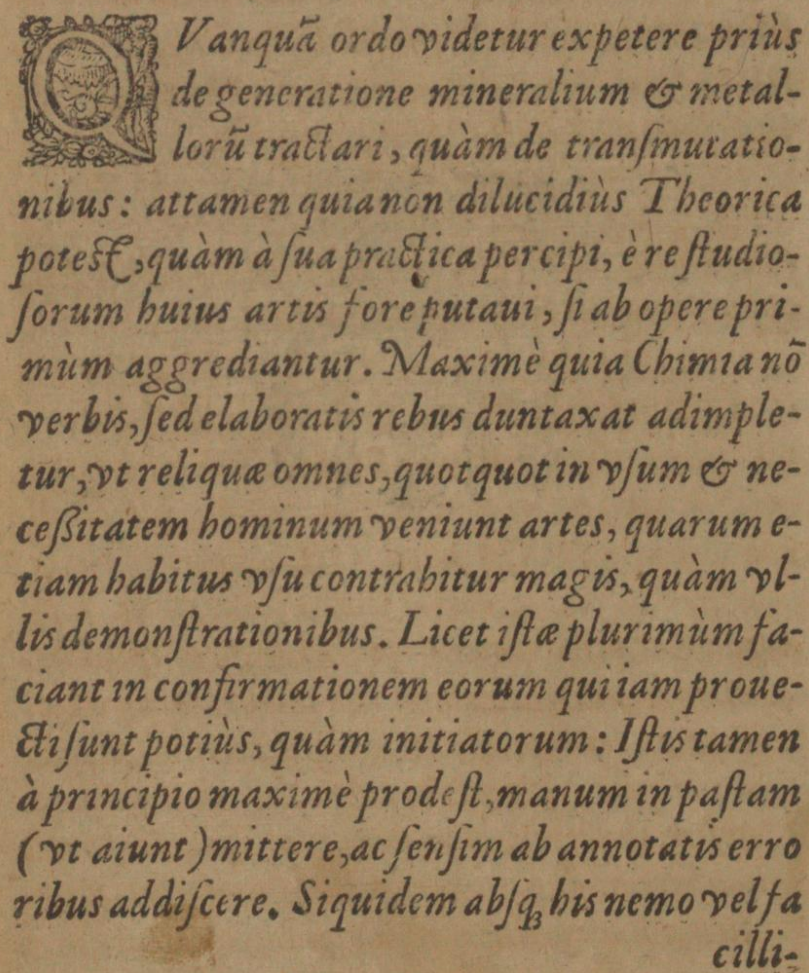 QVanquã ordo videtur expetere priùs
de generatione mineralium & metal-
lorũ tractari, quàm de tranſmutatio-
nibus: attamen quia non dilucidiùs Theorica
poteſt, quàm à ſua practica percipi, è re ſtudio-
ſorum huius artis fore putaui, ſi ab opere pri-
mùm aggrediantur. Maximè quia Chimia nõ
verbis, ſed elaboratis rebus duntaxat adimple-
tur, vt reliquæ omnes, quotquot in vſum & ne-
ceßitatem hominum veniunt artes, quarum e-
tiam habitus vſu contrahitur magis, quàm vl-
lis demonſtrationibus. Licet iſtæ plurimùm fa-
ciant in confirmationem eorum qui iam proue-
cti ſunt potiùs, quàm initiatorum: Iſtis tamen
à principio maximè prodeſt, manum in paſtam
(vt aiunt) mittere, ac ſenſim ab annotatis erro
ribus addiſcere. Siquidem abſq; his nemo vel fa
cilli-